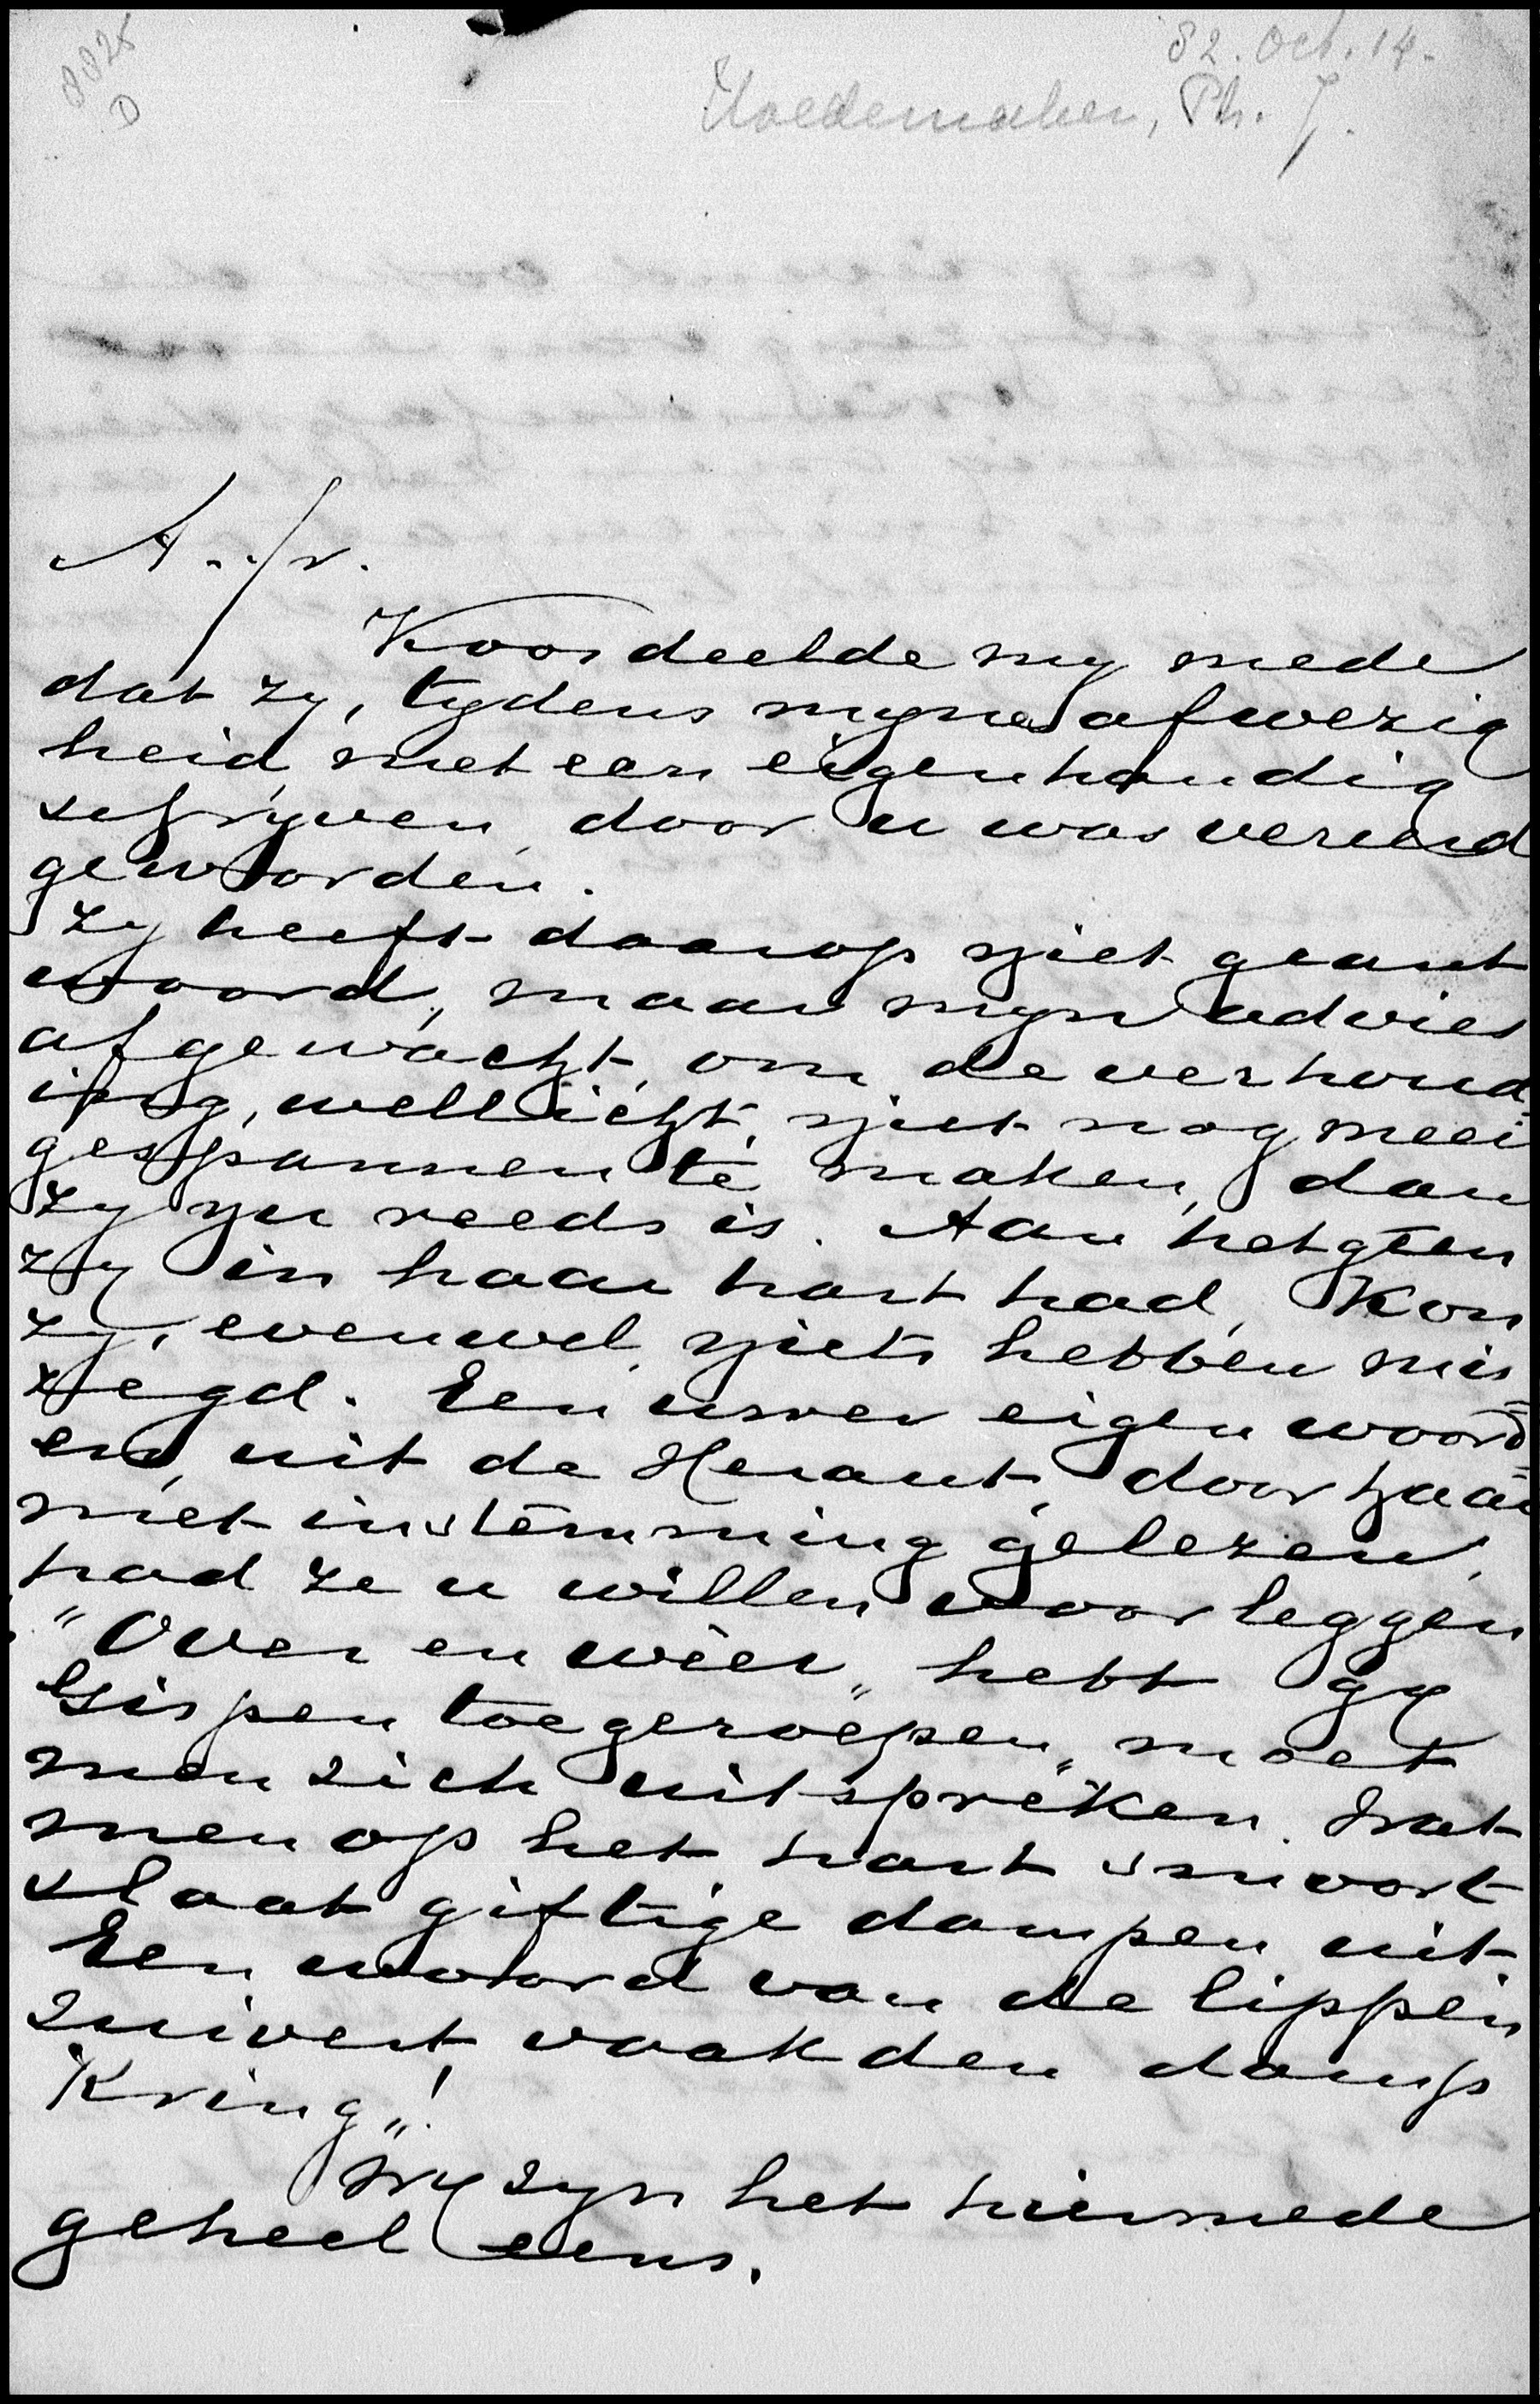 82. Oct. 14.
8825
D
Hoedemaker, Ph. J.
A. fr.
Koos deelde my mede
dat zy, tydens myne afwezig
heid, met een eigenhandig
schryven door u was vereerd
geworden.
Zy heeft daarop niet geant
woord, maar myn advies
afgewacht, om de verhoud=
ing, wellicht, niet nog meer
gespannen te maken, dan
zy nu reeds is. Aan hetgeen
zy in haar hart had, kon
zy, evenwel, niets hebben mis=
zegd. Een uwer eigen woord=
en, uit de Heraut, door haar
met instemming gelezen,
had ze u willen voorleggen
"Over en weer", hebt gy
Gispen toegeroepen, "moet
men zich uitspreken. Wat
men op het hart smoort
slaat giftige dampen uit.
Een woord van de lippen
zuivert vaak den damp
kring"!
Wy zyn het hiermede
geheel eens.